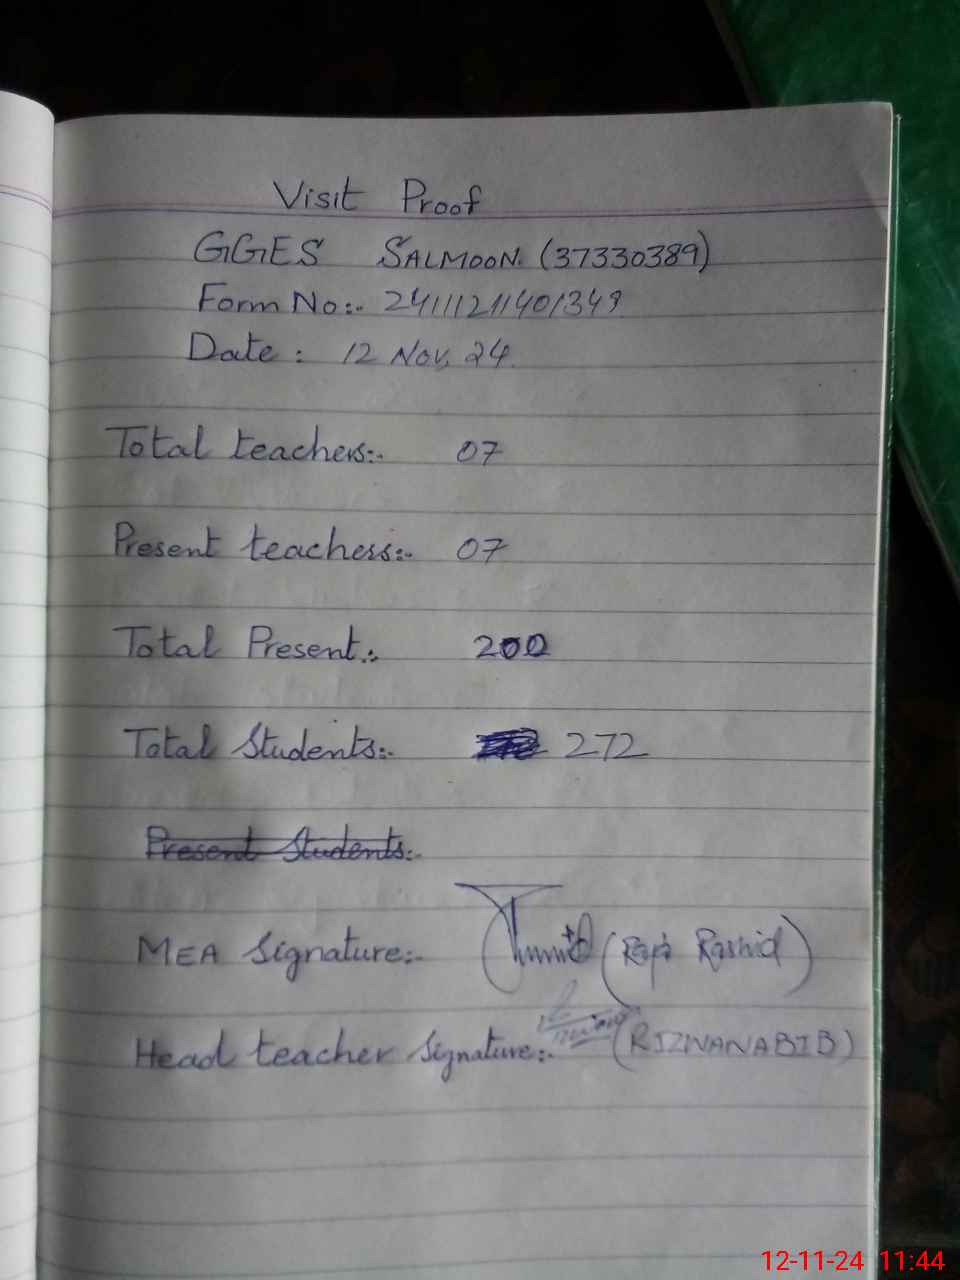 Visit Proof
GGES SALMOON. (37330389)
Form No:- 24111211401349
Date : 12 Nov, 24.
Total teachers:- 07
Present teachers:- 07
Total Present:- 200
Total Students:- 272
Present Students:-
MEA Signature:- (Raja Rashid)
Head teacher Signature:- (RIZWANABIB)
12-11-24 11:44